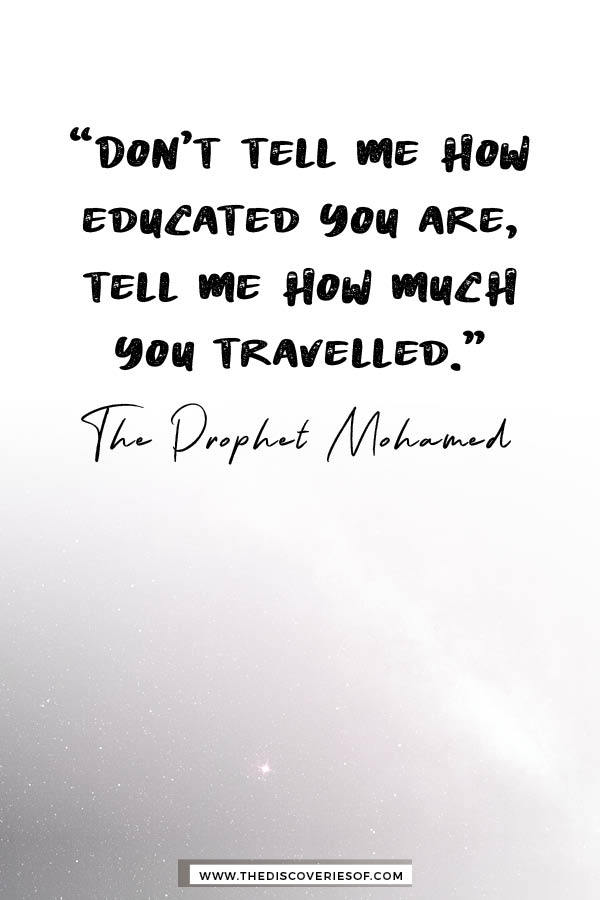 “DON’T TELL ME HOW
EDUCATED YOU ARE,
TELL ME HOW MUCH
YOU TRAVELLED.”
The Prophet Mohamed
WWW.THEDISCOVERIESOF.COM